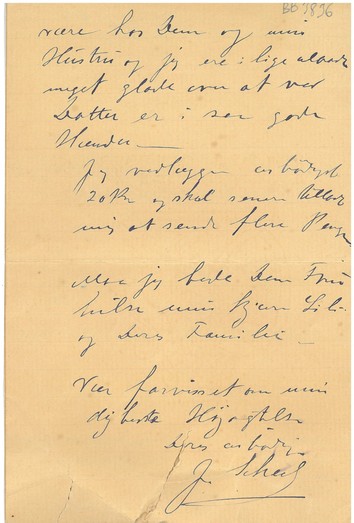 BG 3896
være hos Dem og min
Hustru og jeg ere i lige maade
meget glade over at vor
Datter er i saa gode
Hænder —
Jeg vedlægger ærbødigst
20 Kr og skal senere tillade
mig at sende flere Penge
Maa jeg bede Dem Frue
hilse min kjære Lili
og Deres Familie —
Vær forvisset om min
dybeste Højagtelse
Deres ærbødige
J.